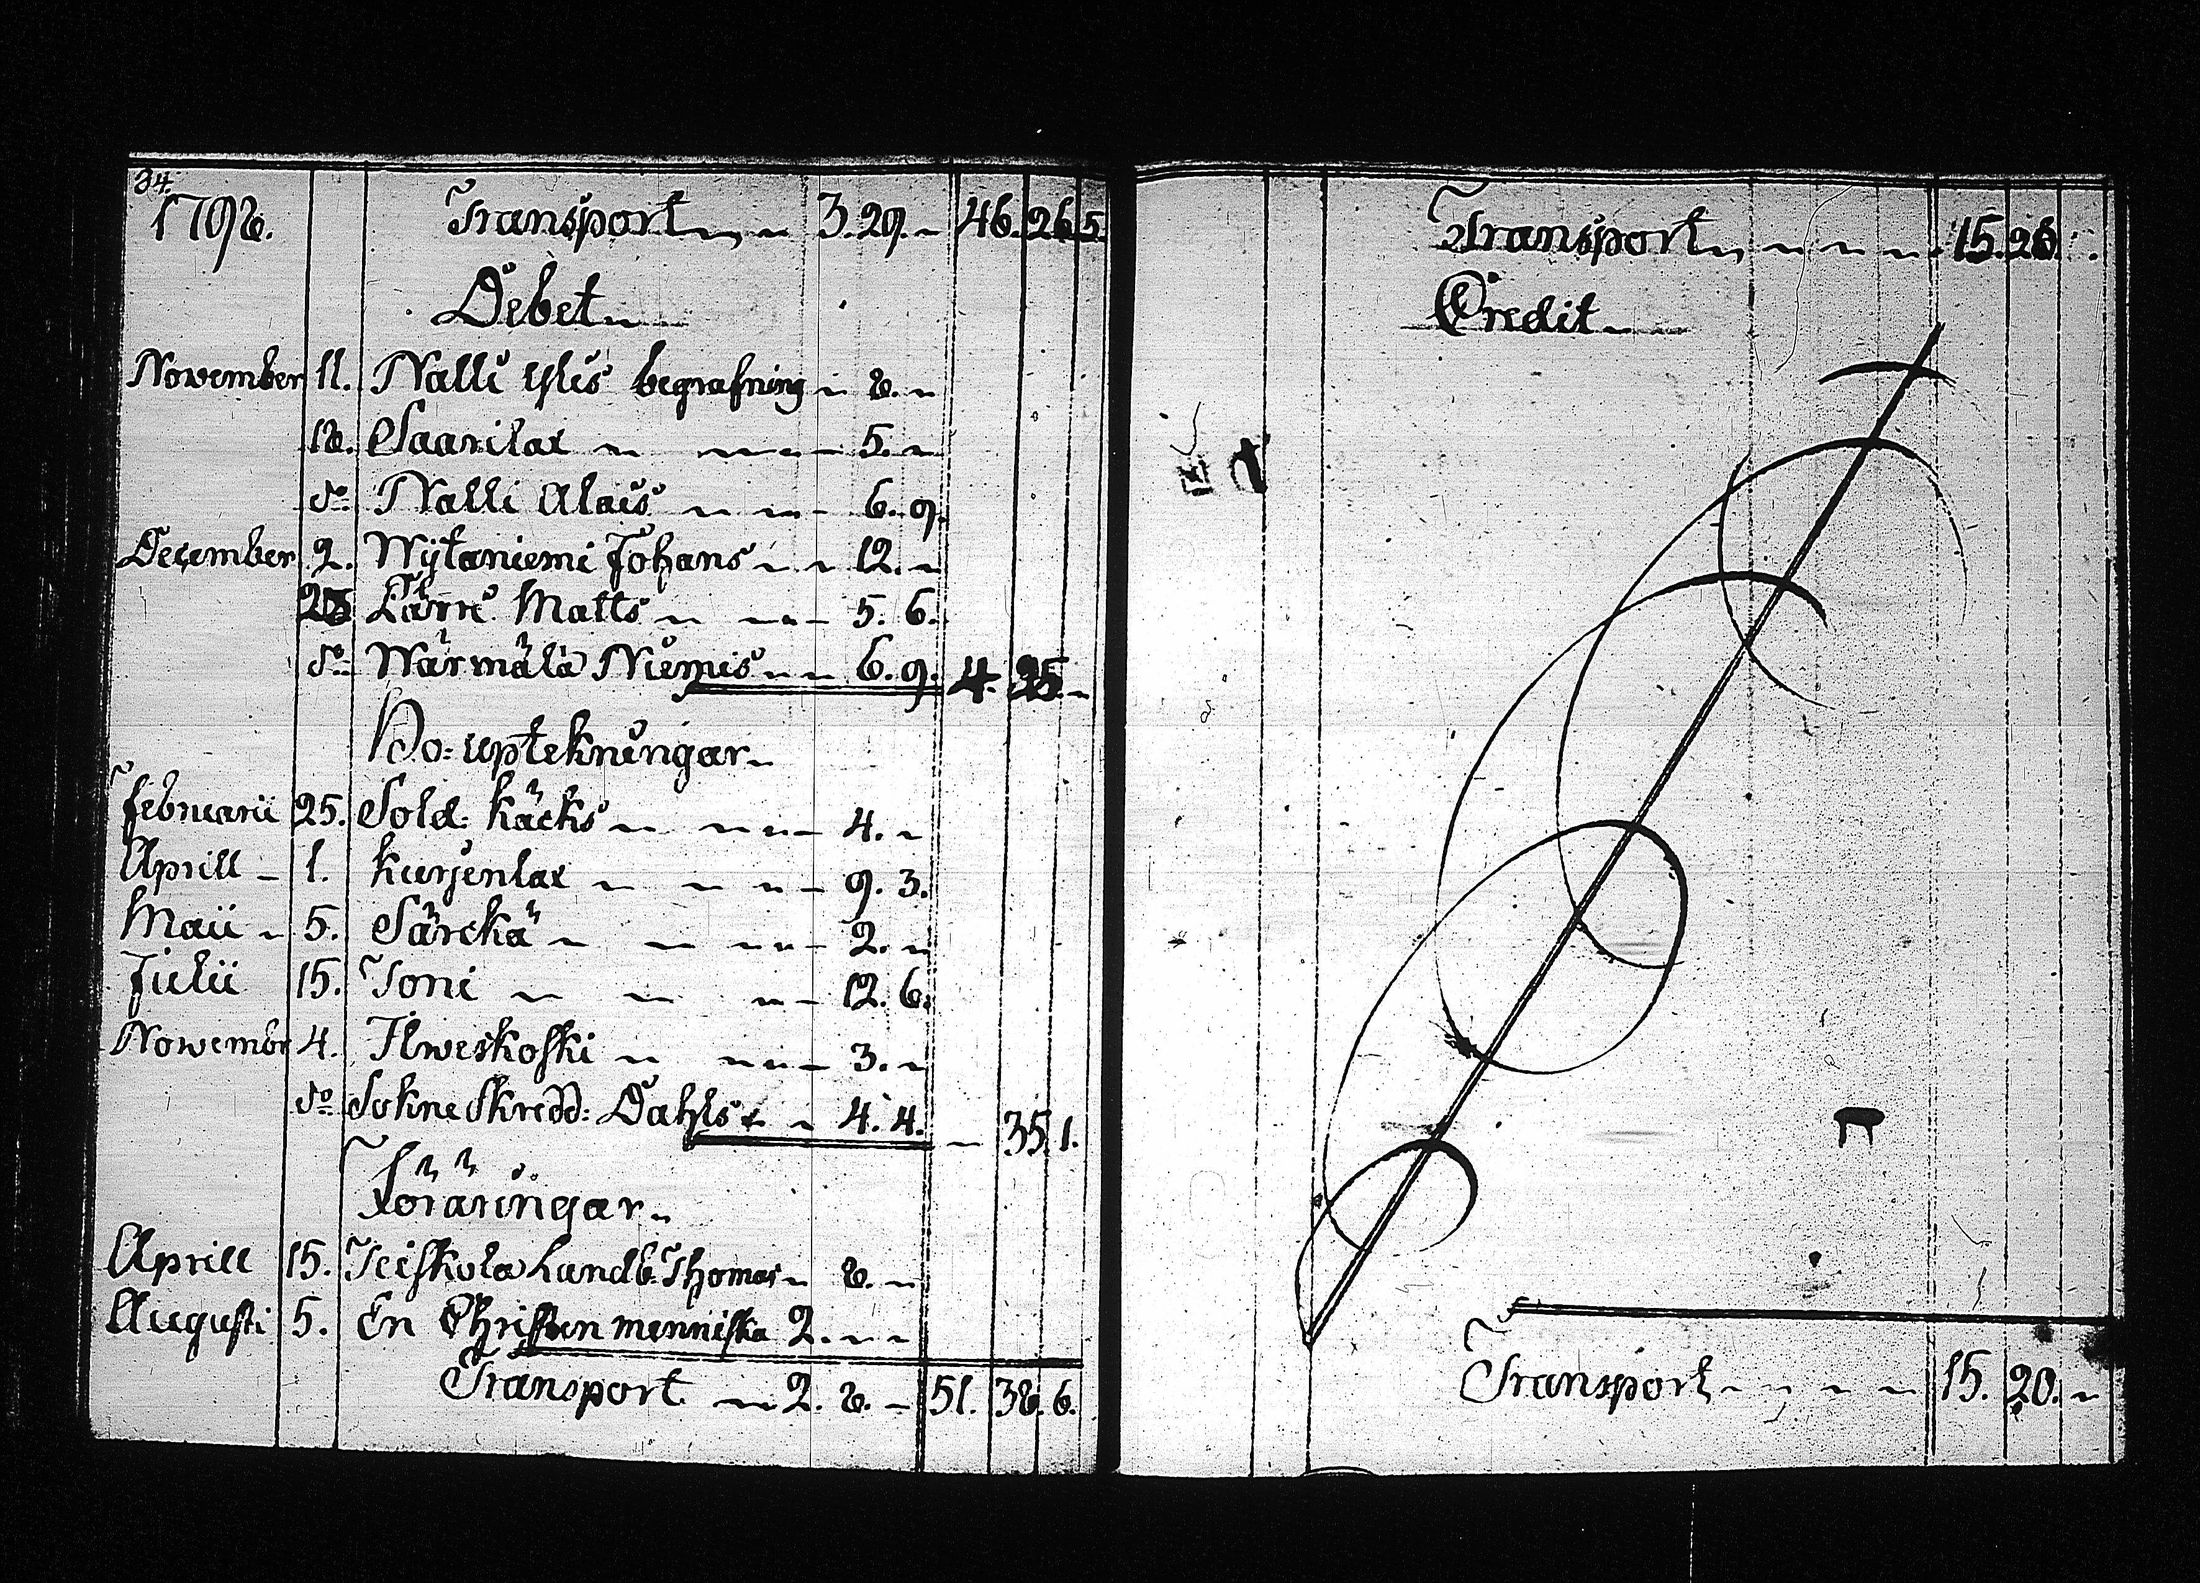 34.
1798. Transport 3. 29. - 46. 26. 5.
Debet
November 11. Nalli Ylis begrafning - 8. -
18. Saarilax - - - 5. -
do Nalli Alais - - 6. 9.
December 2. Wÿtaniemi Johans - - 12. -
23 Lärri Matts - - - 5. 6.
do Wärmälä Niemis - - 6. 9. 4. 25. -
Bo: uptekningar
Februarii 25. Sold: Käcks - - - 4. -
Aprill - 1. Kurjenlax - - - 9. 3.
Maii - 5. Särckä - - - 2. -
Julii 15. Toni - - - 12. 6.
Novembr 4. Ilweskoski - - - 3. -
do Sokneskredd: Dahls - - 4. 4. - 35. 1.
Föräringar
Aprill 15. Teiskola Landb: Thomas - 8. -
Augusti 5. En Christen menniska 2. - -
Transport - 2. 8. - 51. 38. 6.
Transport - - - - 15. 20. -
Credit
Transport - - - - 15. 20. -